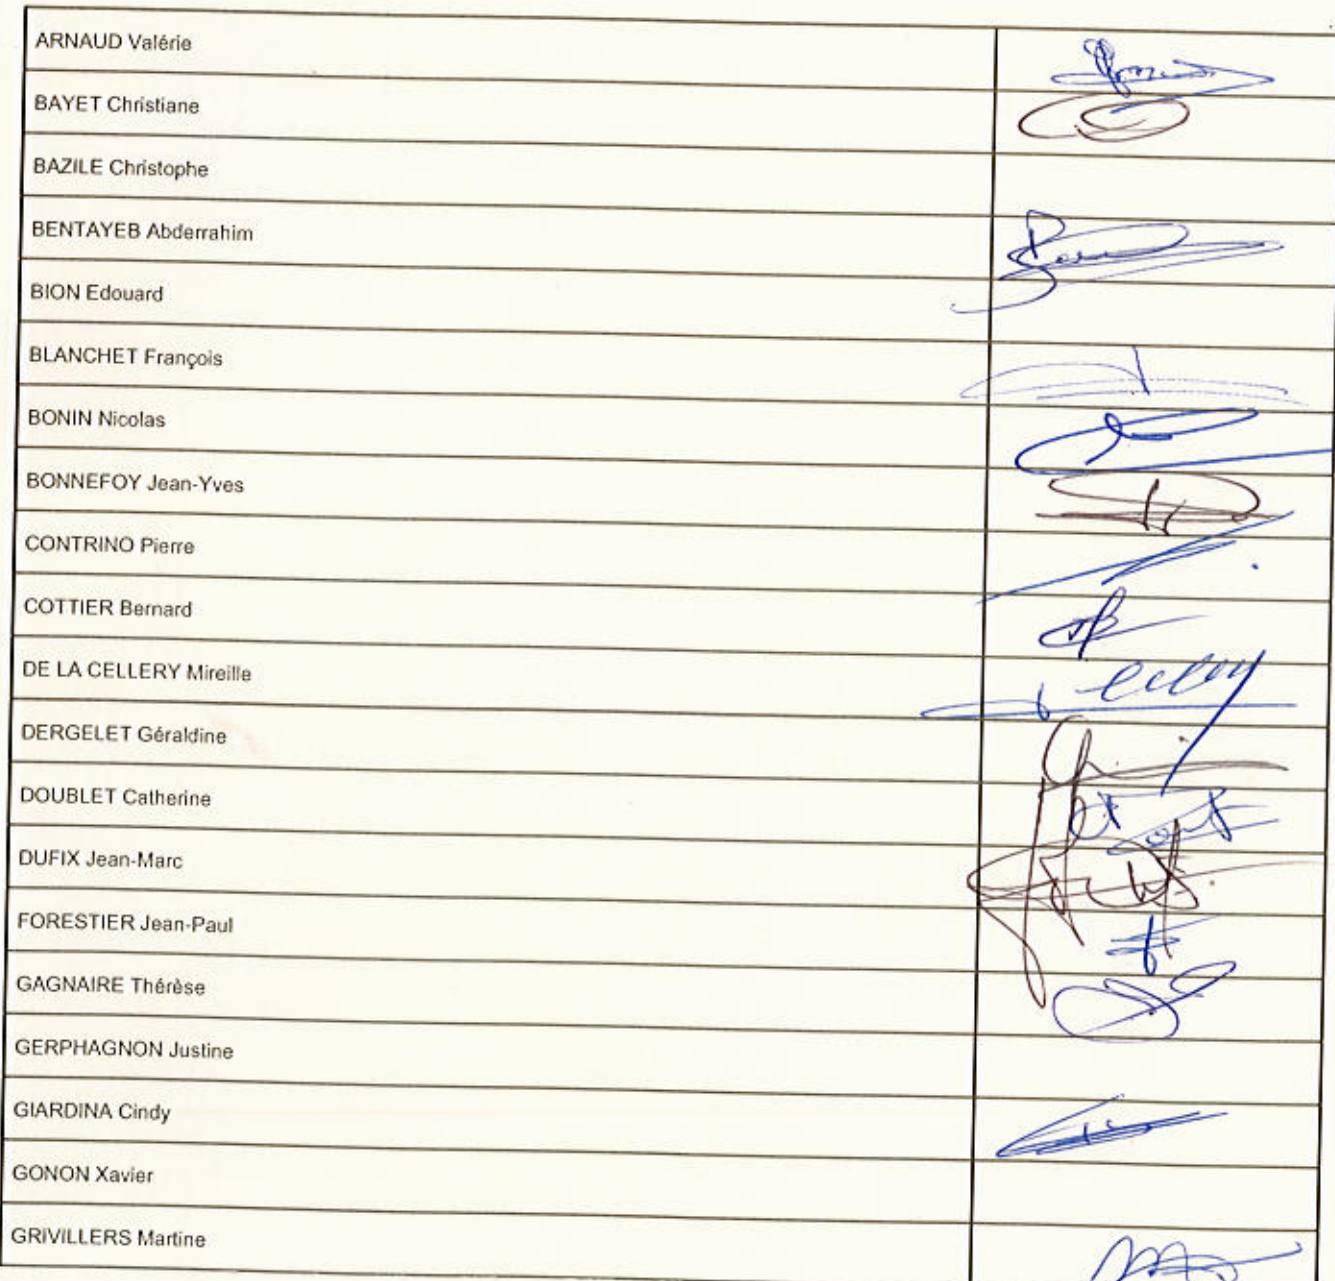 ARNAUD Valérie
BAYET Christiane
BAZILE Christophe
BENTAYEB Abderrahim
BION Edouard
BLANCHET François
BONIN Nicolas
BONNEFOY Jean-Yves
CONTRINO Pierre
COTTIER Bernard
DE LA CELLERY Mireille
DERGELET Géraldine
DOUBLET Catherine
DUFIX Jean-Marc
FORESTIER Jean-Paul
GAGNAIRE Thérèse
GERPHAGNON Justine
GIARDINA Cindy
GONON Xavier
GRIVILLERS Martine